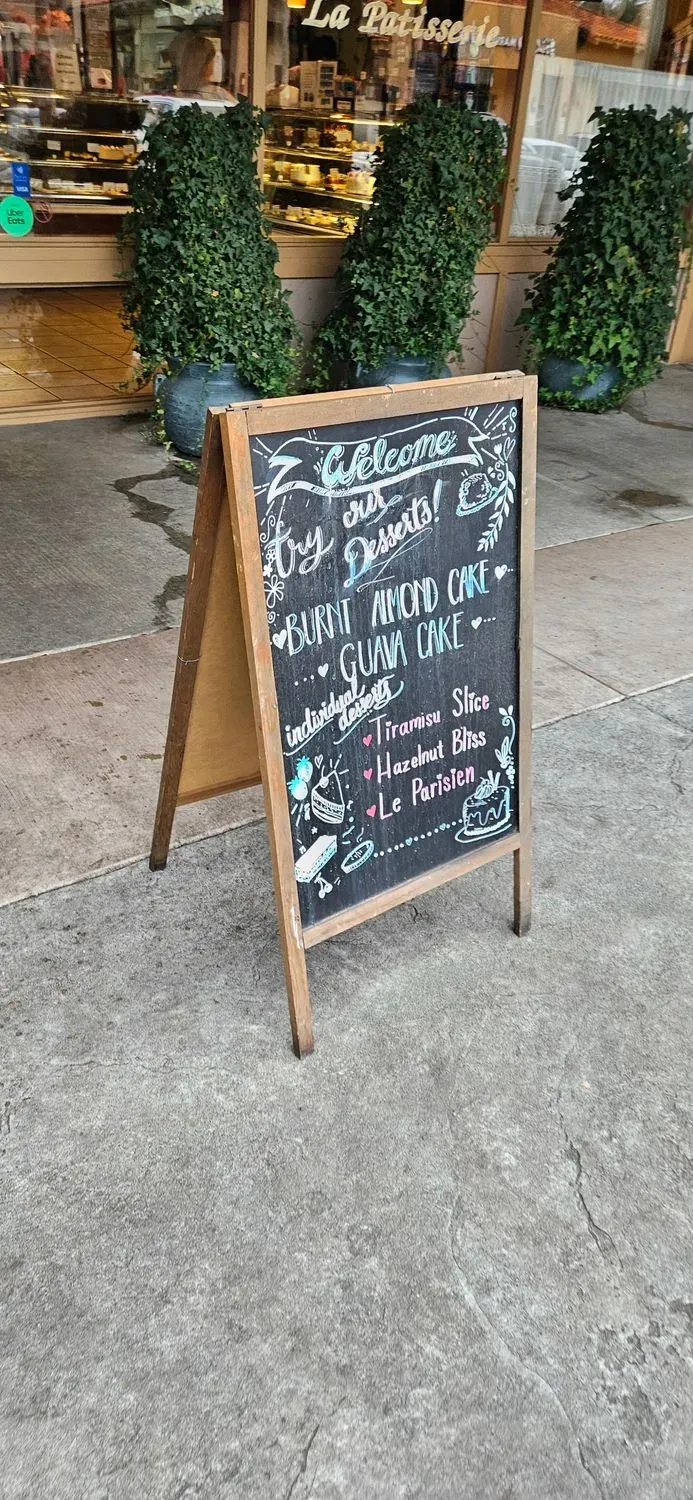 La Patisserie
VISA
Uber
Eats
Welcome
try our
Desserts!
BURNT ALMOND CAKE
GUAVA CAKE
individual
desserts
Tiramisu Slice
Hazelnut Bliss
Le Parisien